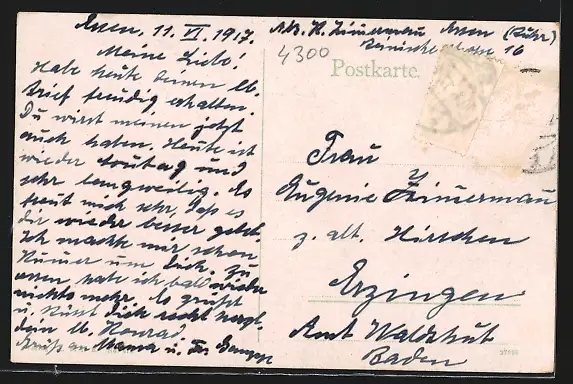 Essen, 11. VI. 1917.
Meine Liebe!
Habe heute deinen lb.
Brief freudig erhalten.
Du wirst meinen jetzt
auch haben. Heute ist
wieder Sonntag und
sehr langweilig. Es
freut mich sehr, daß es
dir wieder besser geht.
Ich machte mir schon
Kummer um dich. Zu
essen habe ich bald wieder
nichts mehr. Es grüßt
u. küsst dich recht herzl.
dein lb. Konrad
Gruß an Mama u.
Abs. K. Zimmermau Essen (Ruhr)
16
4300
Postkarte
Frau
Eugenie Zimmermau
z. alt. Hirschen
Erzingen
Amt Waldshut
Baden